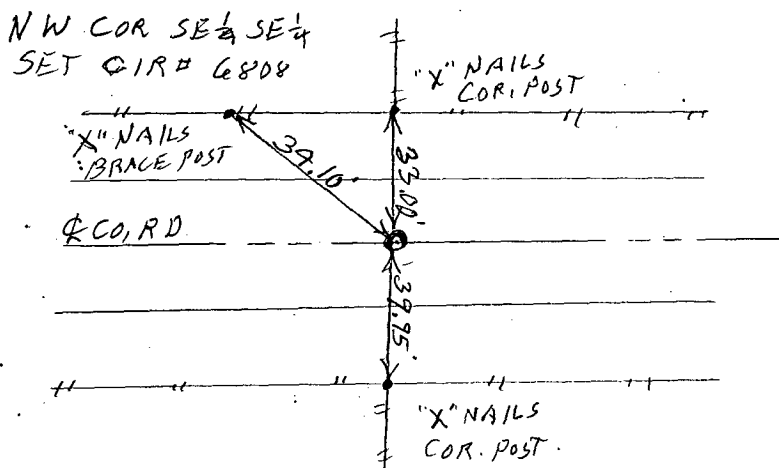 NW COR SE¼ SE¼
SET CIR# 6808
"X" NAILS
COR. POST
"X" NAILS
BRACE POST
34.10'
33.00'
℄ CO, RD
39.95'
"X" NAILS
COR. POST.